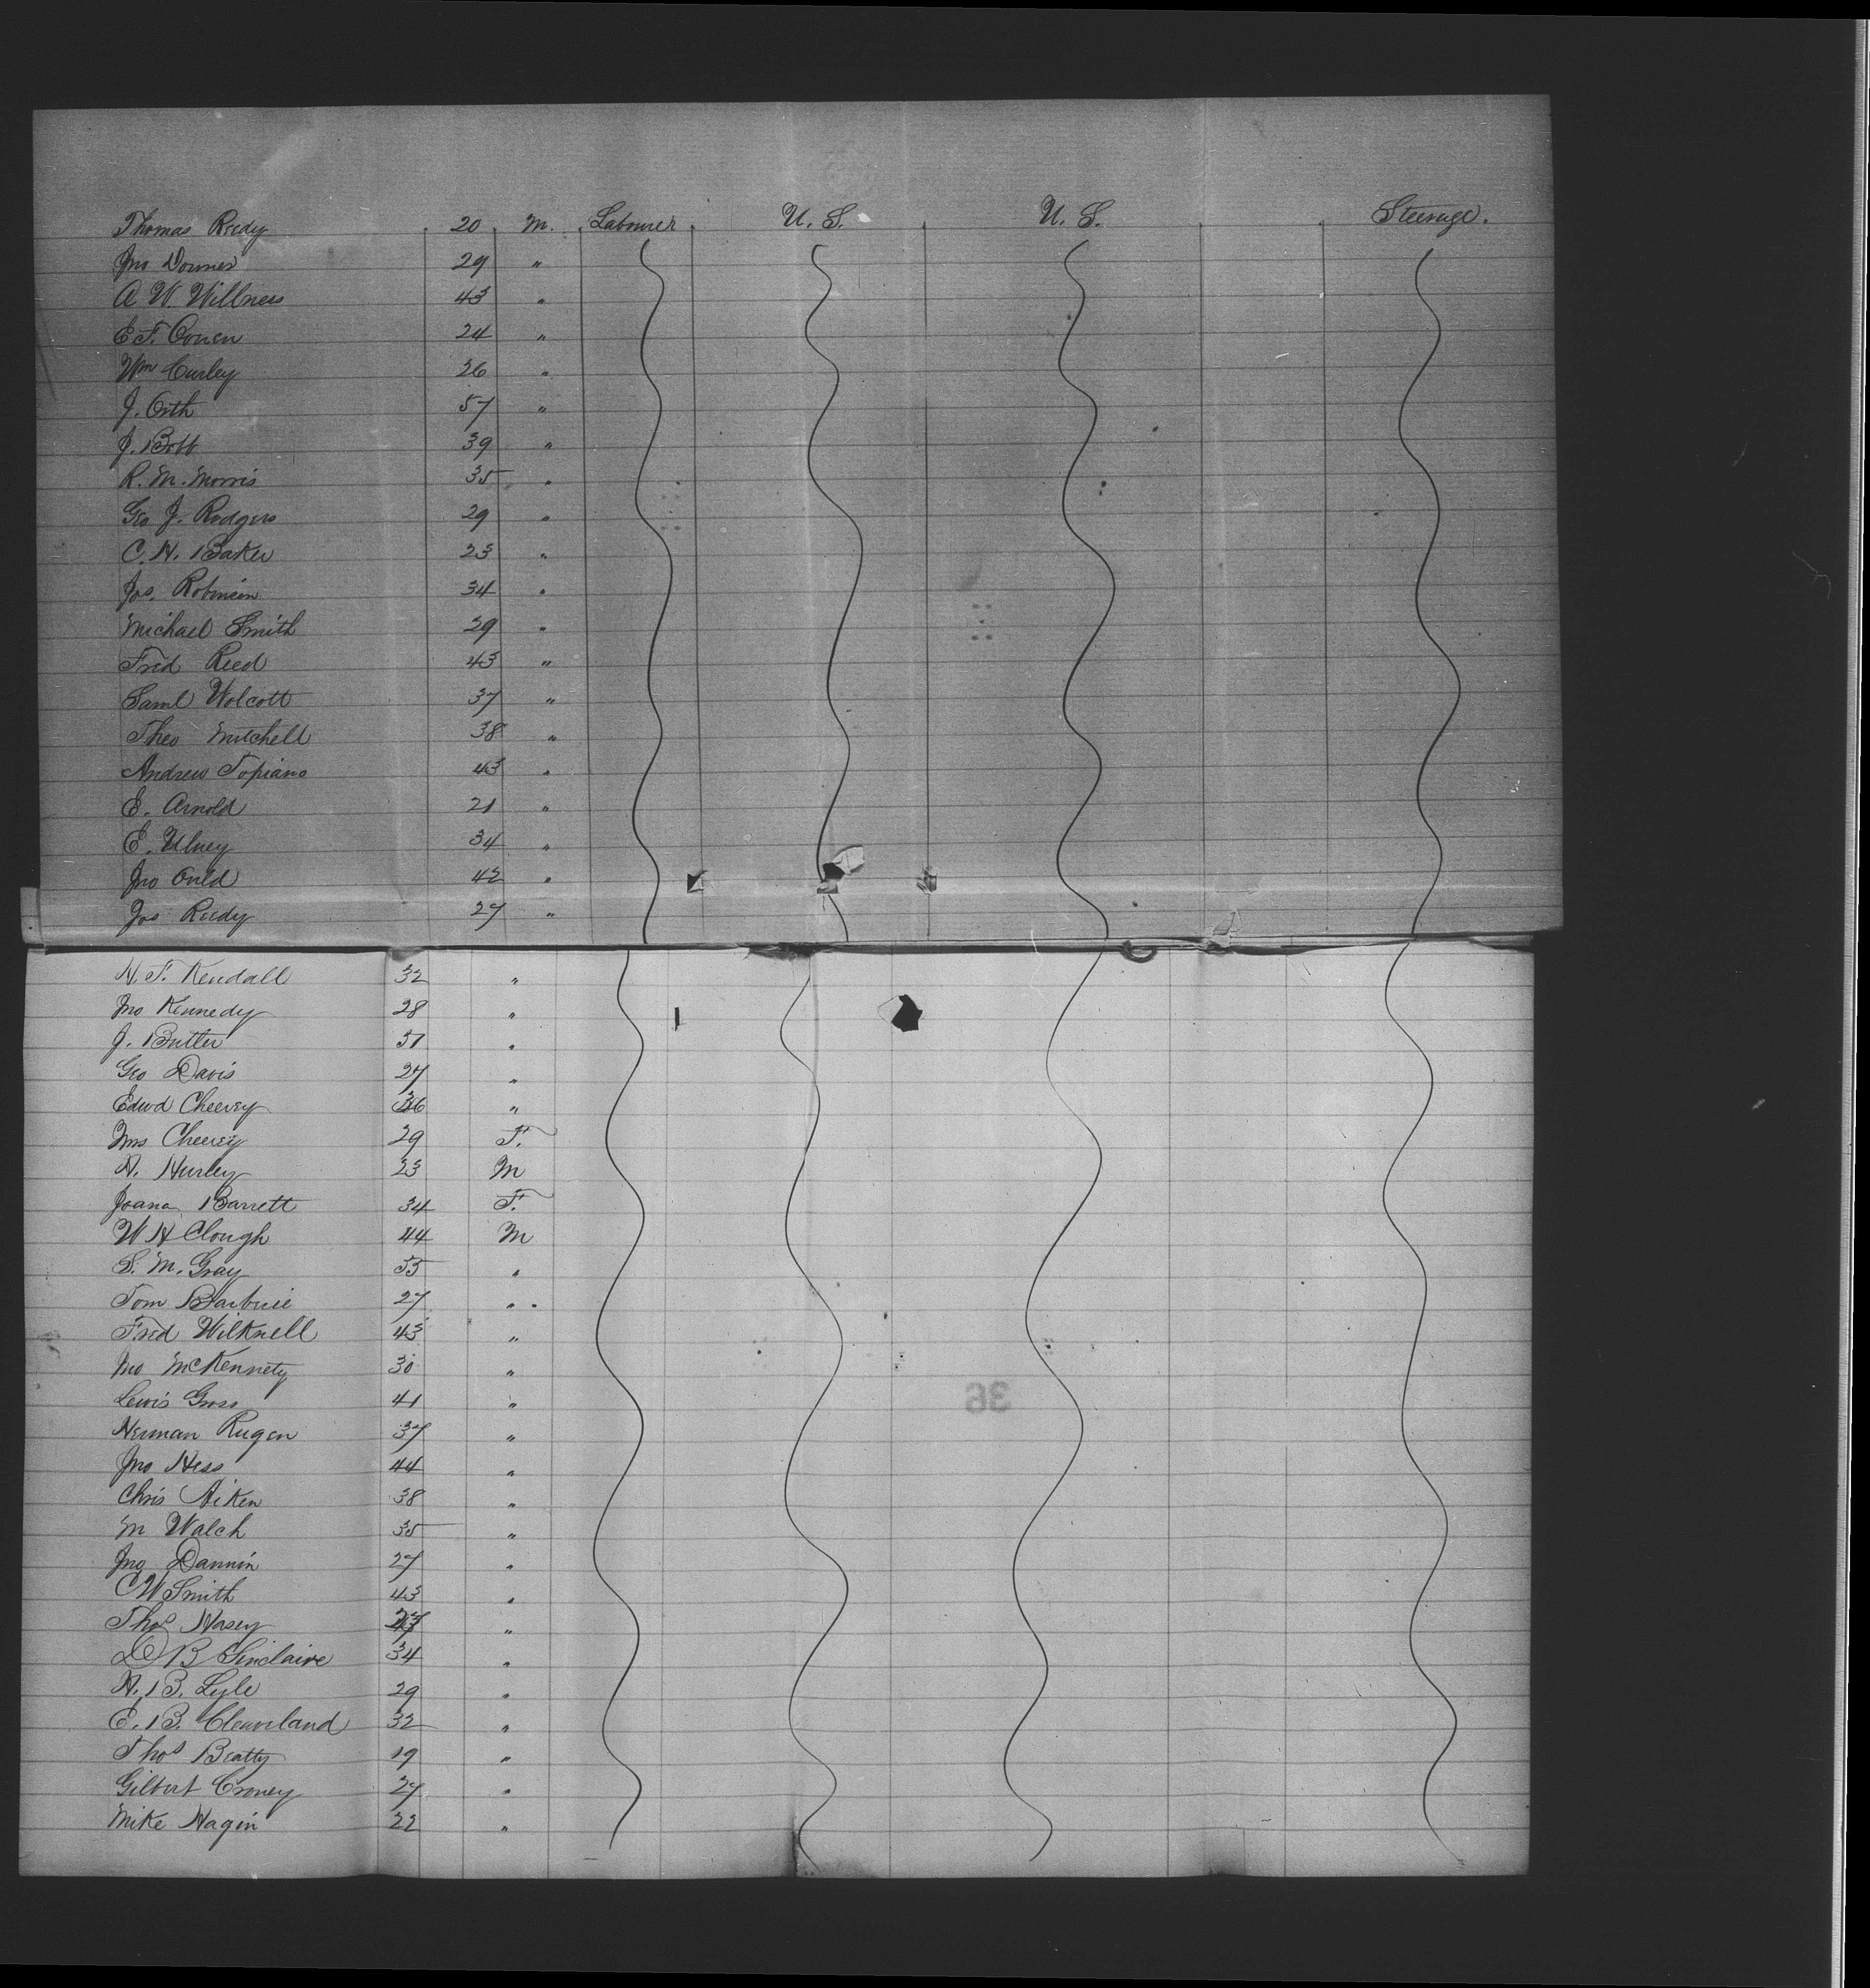 Thomas Reedy 20 M. Labourer U. S. U. S. Steerage.
Jno Downes 29 "
A W. Willness 43 "
E F. Conen 24 "
Wm Curley 26 "
J. Orth 57 "
J. Bott 39 "
R. M. Morris 35 "
Geo J. Rodgers 29 "
C. H. Baker 23 "
Jos. Robinson 34 "
Michael Smith 29 "
Fred Reed 43 "
Saml Wolcott 37 "
Theo Mitchell 38 "
Andrew Topiano 43 "
E. Arnold 21 "
E. Ulney 34 "
Jno Ould 42 "
Jos Reedy 27 "
H. F. Kendall 32 "
Jno Kennedy 28 "
J. Butler 31 "
Geo Davis 27 "
Edwd Cheevey 36 "
Mrs Cheevey 29 F.
H. Hurley 23 M
Joana Barrett 34 F.
W H Clough 44 M
S. M. Gray 55 "
Tom 27 "
Fred Wilknell 43 "
Jno McKennety 30 "
Lewis Gross 41 "
Herman Rugen 37 "
Jno Hess 44 "
Chris Aiken 38 "
M Walch 35 "
Jno Dannin 27 "
C W Smith 43 "
Thos Hasey "
D B Sinclaire 34 "
H. B. Lyle 29 "
E. B. Cleaveland 32 "
Thos Beatty 19 "
Gilbert Croney 27 "
Mike Hagin 22 "